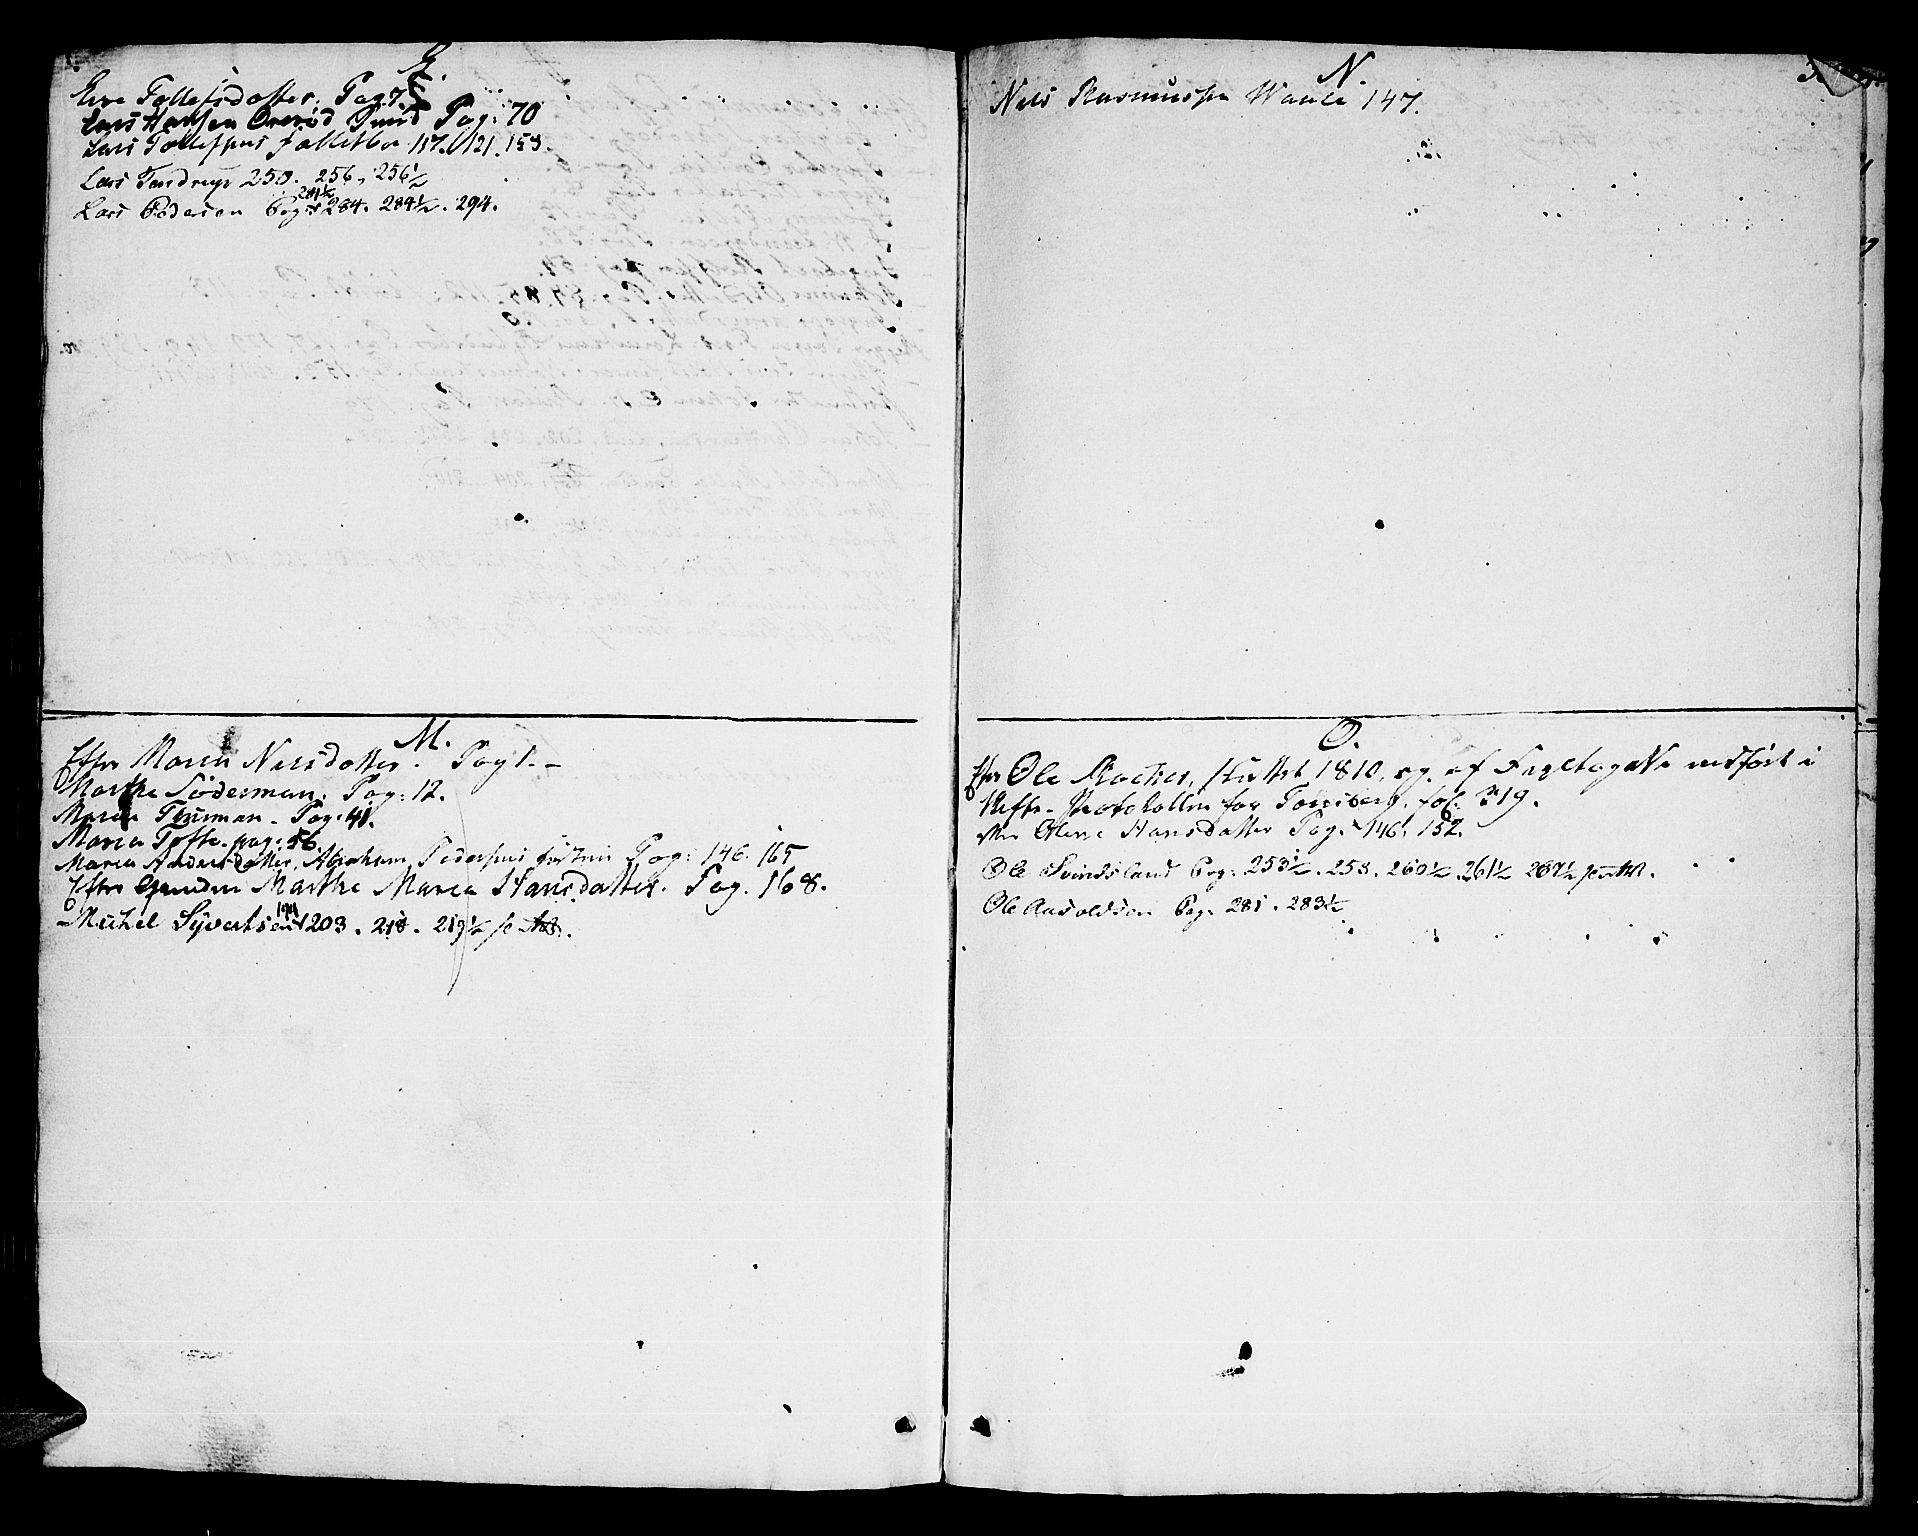 L.
Live Tollefsdatter. Pag 7.
Lars Hansen Ourød Sund Pag: 70
Lars Tollefsens 117. 121. 153.
Lars Tandrup 250. 256, 256½
Lars Pedersen Pag: 281½ 284. 284½. 294.
M.
Efter Maren Nilsdatter. Pag 1. –
Marthe Söderman. Pag: 12.
Maren Thurman. Pag: 41.
Maren Tofte. pag: 56.
Maren Andersdatter, Abraham Pedersens Pag: 146. 165
Efter Marthe Maria Hansdatter. Pag. 168.
Michel Syvertsen 199 203. 218. 219½
N.
Nils Rasmussen Waale 147.
O.
Efter Ole 1810, og af indført i
Protokollen for Tønsberg. fol: 319.
Olene Hansdatter Pag. 146. 152.
Ole Svindsland Pag: 253½. 258. 260½. 261½ 267½
Ole Aasoldsen Pag. 281. 283½